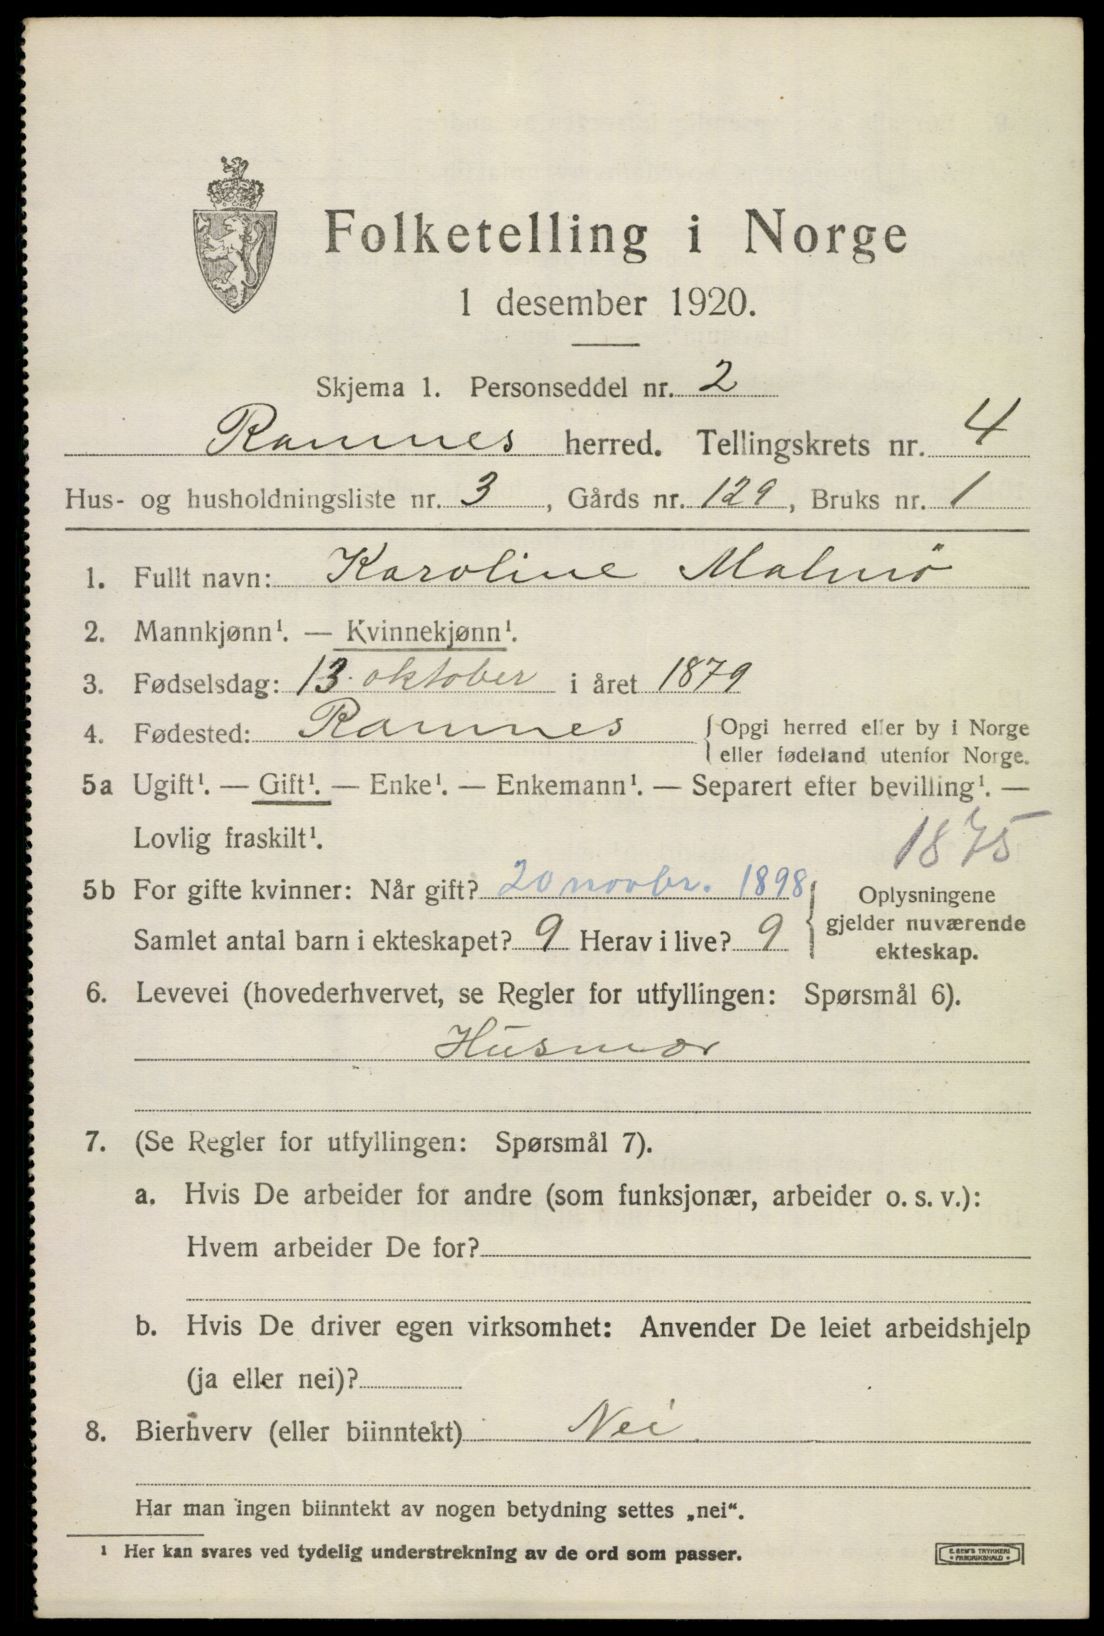 Folketelling i Norge
1 desember 1920.
Skjema 1. Personseddel nr. 2
Ramnes herred. Tellingskrets nr. 4
Hus- og husholdningsliste nr. 3, Gårds nr. 129, Bruks nr. 1
1. Fullt navn: Karoline Malmö
2. Mannkjønn¹. — Kvinnekjønn¹.
3. Fødselsdag: 13. oktober i året 1879
4. Fødested: Ramnes { Opgi herred eller by i Norge
eller fødeland utenfor Norge.
5a Ugift¹. — Gift¹. — Enke¹. — Enkemann¹. — Separert efter bevilling¹. —
Lovlig fraskilt¹. 1875
5b For gifte kvinner: Når gift? 20 novbr. 1898
Samlet antal barn i ekteskapet? 9 Herav i live? 9
} Oplysningene
gjelder nuværende
ekteskap.
6. Levevei (hovederhvervet, se Regler for utfyllingen: Spørsmål 6).
Husmor
7. (Se Regler for utfyllingen: Spørsmål 7).
a. Hvis De arbeider for andre (som funksjonær, arbeider o. s. v.):
Hvem arbeider De for?
b. Hvis De driver egen virksomhet: Anvender De leiet arbeidshjelp
(ja eller nei)?
8. Bierhverv (eller biinntekt) Nei
Har man ingen biinntekt av nogen betydning settes „nei“.
¹ Her kan svares ved tydelig understrekning av de ord som passer.
E. SEM'S TRYKKERI
• FREDRIKSHALD •